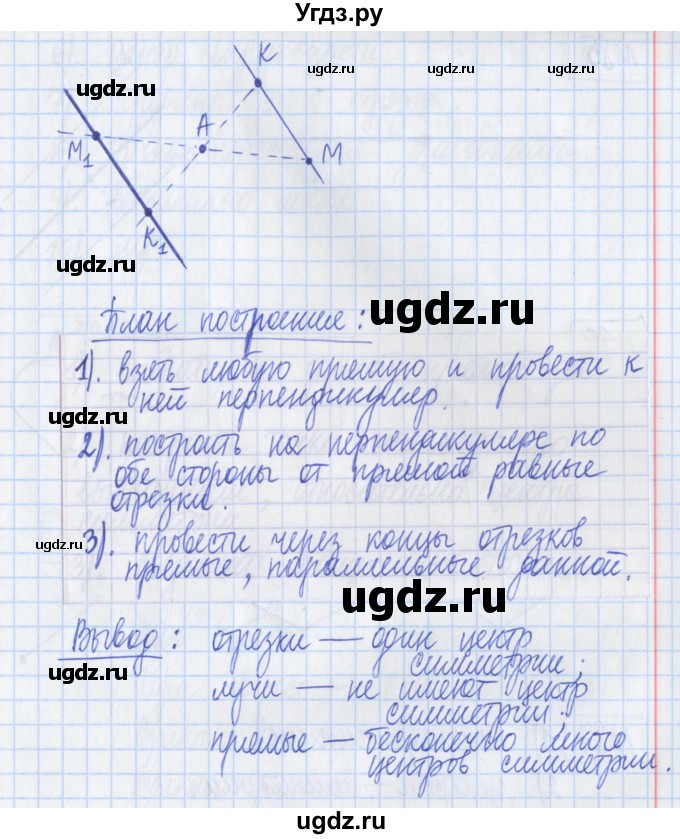 Угдз.ру
K
ugdz.ru
ugdz.ru
ugdz.ru
A
M₁
M
ugdz.ru
K₁
ugdz.ru
ugdz.ru
План построения:
1). взять любую прямую и провести к
ней перпендикуляр.
ugdz.ru
2). построить на перпендикуляре по
обе стороны от прямой равные
отрезки.
ugdz.ru
3). провести через концы отрезков
прямые, параллельные данной.
ugdz.ru
Вывод: отрезки — один центр
симметрии;
ugdz.ru
лучи — не имеют центр
симметрии;
ugdz.ru
прямые — бесконечно много
центров симметрии.
ugdz.ru
ugdz.ru
ugdz.ru
ugdz.ru